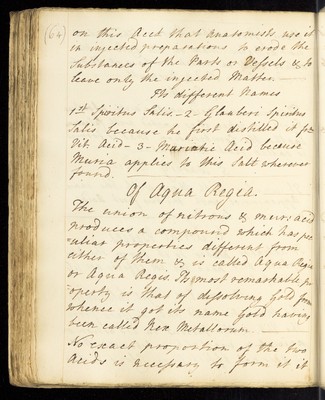 (64)
on this Acct that Anatomists use it
in injected preparations to erode the
Substances of the Parts or Vessels & to
leave only the injected Matter.
Its different Names
1st Spiritus Salis - 2 - Glauberi Spiritus
Salis because he first distilled it
Vit. Acid - 3 - Muriatic Acid because
Muria applies to this Salt wherever
found.
Of Aqua Regia.
The union of nitrous & muri: acid
produces a compound which has pe
culiar properties different from
either of them & is called Aqua Regia
or Aqua Regis. The most remarkable pr
operty is that of dissolving Gold from
whence it got its name Gold having
been called Rex Metallorum
No exact proportion of the two
Acids is necessary to form it it